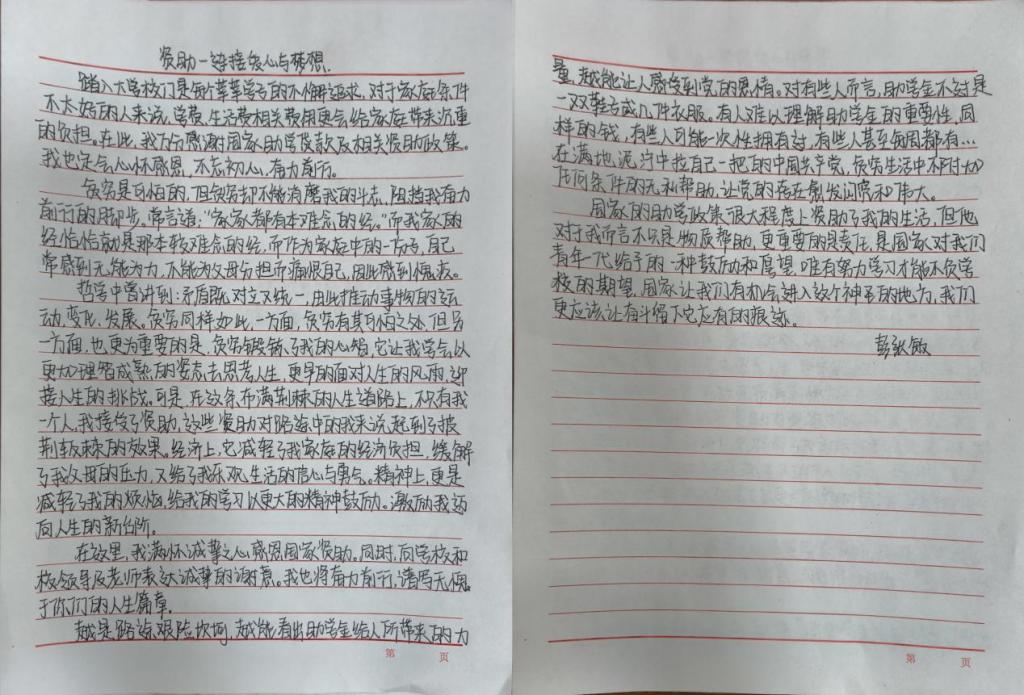 资助—连接爱心与梦想.
踏入大学校门是每个莘莘学子的不懈追求,对于家庭条件
不太好的人来说,学费、生活费相关费用更会给家庭带来沉重
的负担。在此,我万分感谢国家助学贷款及相关资助政策。
我也定会心怀感恩,不忘初心,奋力前行。
贫穷是可怕的,但贫穷却不能消磨我的斗志,阻挡我奋力
前行的脚步。常言道:“家家都有本难念的经。”而我家的
经恰恰就是那本较难念的经,而作为家庭中的一份子,自己
常感到无能为力,不能为父母分担而痛恨自己,因此感到愧疚。
哲学中曾讲到:矛盾既对立又统一,由此推动事物的运
动、变化、发展。贫穷同样如此,一方面,贫穷有其可怕之处,但另
一方面,也更为重要的是,贫穷锻炼了我的心智,它让我学会以
更加理智成熟的姿态去思考人生,更早的面对人生的风雨,迎
接人生的挑战。可是,在这条布满荆棘的人生道路上,不只有我
一个人,我接受了资助,这些资助对陷途中的我来说,起到了披
荆斩棘的效果。经济上,它减轻了我家庭的经济负担,缓解
了我父母的压力,又给了我乐观生活的信心与勇气。精神上,更是
减轻了我的烦恼,给我的学习以更大的精神鼓励。激励我迈
向人生的新台阶。
在这里,我满怀诚挚之心感恩国家资助。同时,向学校和
校领导及老师表达诚挚的谢意。我也将奋力前行,谱写无愧
于你们的人生篇章。
越是路途艰险坎坷,越能看出助学金给人所带来的力
量,越能让人感受到党的恩情。对有些人而言,助学金不过是
一双鞋子或几件衣服。有人难以理解助学金的重要性,同
样的钱,有些人可能一次性拥有过,有些人甚至每周都有…
在满地泥泞中拉自己一把的中国共产党,贫穷生活中不附加
任何条件的无私帮助,让党的存在散发闪亮和伟大。
国家的助学政策很大程度上资助了我的生活,但他
对于我而言不只是物质帮助,更重要的是责任,是国家对我们
青年一代给予的一种鼓励和厚望,唯有努力学习才能不负学
校的期望,国家让我们有机会进入这个神圣的地方,我们
更应该让奋斗留下它应有的痕迹。
彭张敏
第 页
第 页